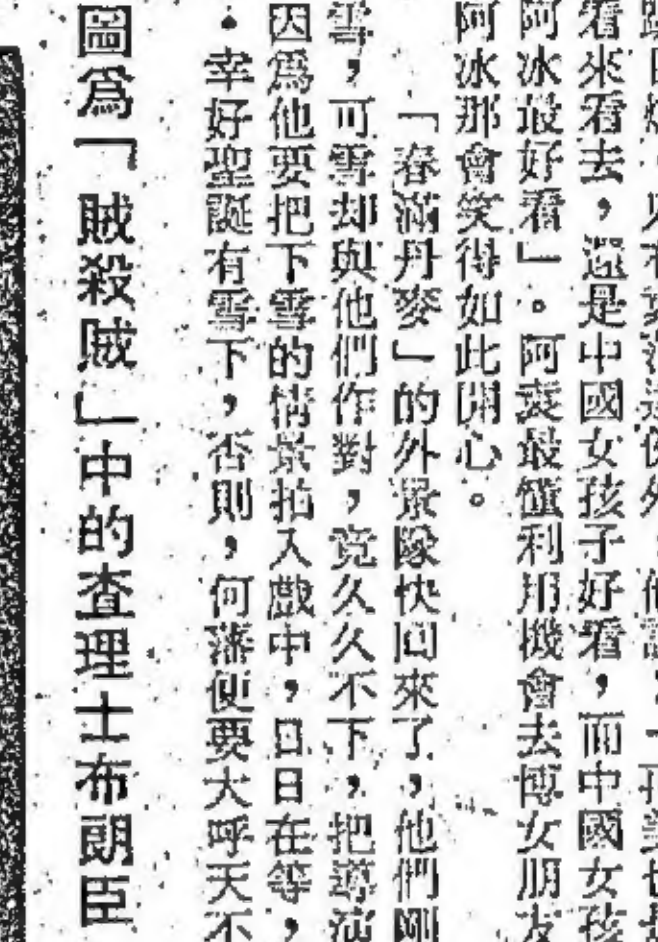 看來看去,還是中國女孩子好看,而中國女孩
阿冰最好看」。阿袁最懂利用機會去博女朋友
阿冰那會笑得如此開心。
「春滿丹麥」的外景隊快回來了,他們剛
雪,可雪却與他們作對,竟久久不下,把導演
因為他要把下雪的情景拍入戲中,日日在等,
。幸好聖誕有雪下,否則,何藩便要大呼天不
圖為「賊殺賊」中的查理士布朗臣